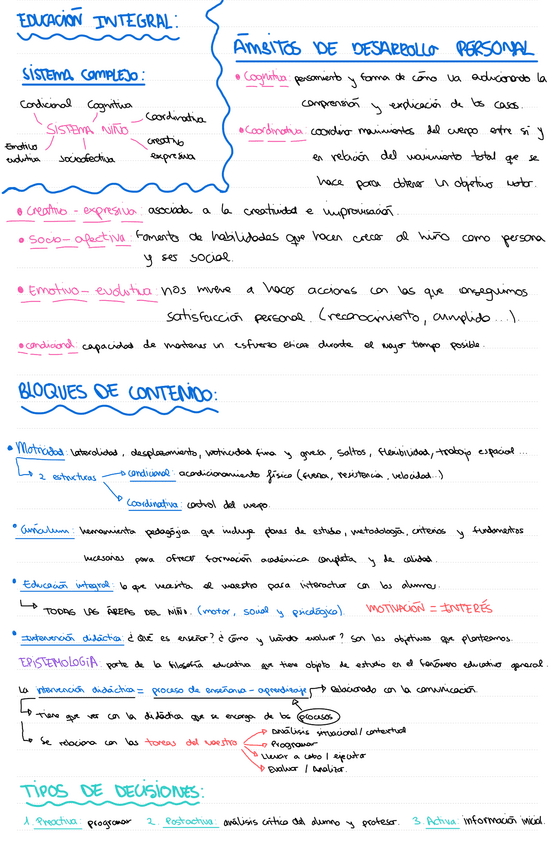 EDUCACIÓN INTEGRAL:
SISTEMA COMPLEJO:
Condicional Cognitiva
Coordinativa
SISTEMA NIÑO
Emotivo evolutiva
socioafectiva
creativo expresiva
ÁMBITOS DE DESARROLLO PERSONAL
• Cognitiva: pensamiento y forma de cómo va evolucionando la
comprensión y explicación de las cosas.
• Coordinativa: coordinar movimientos del cuerpo entre sí y
en relación del movimiento total que se
hace para obtener un objetivo motor.
• Creativo - expresiva: asociada a la creatividad e improvisación.
• Socio - afectiva: Fomento de habilidades que hacen crecer al niño como persona
y ser social.
• Emotivo - evolutiva: nos mueve a hacer acciones con las que conseguimos
satisfacción personal. (reconocimiento, cumplido...).
• condicional: capacidad de mantener un esfuerzo eficaz durante el mayor tiempo posible.
BLOQUES DE CONTENIDO:
• Motricidad: lateralidad, desplazamiento, motricidad fina y gruesa, saltos, flexibilidad, trabajo espacial...
→ 2 estructuras → condicional: acondicionamiento físico (fuerza, resistencia, velocidad...)
→ Coordinativa: control del cuerpo.
• Currículum: herramienta pedagógica que incluye planes de estudio, metodología, criterios y fundamentos
necesarios para ofrecer formación académica completa y de calidad.
• Educación integral: lo que necesita el maestro para interactuar con los alumnos.
→ TODAS LAS ÁREAS DEL NIÑO. (motor, social y psicológico). MOTIVACIÓN = INTERÉS
• Intervención didáctica: ¿QUÉ es enseñar? ¿cómo y cuándo evaluar? Son los objetivos que planteamos.
EPISTEMOLOGÍA parte de la filosofía educativa que tiene objeto de estudio en el fenómeno educativo general.
La intervención didáctica = proceso de enseñanza - aprendizaje → Relacionado con la comunicación.
→ Tiene que ver con la didáctica que se encarga de los procesos
→ Se relaciona con las tareas del maestro
→ Análisis situacional / contextual
→ Programar
→ Llevar a cabo / ejecutar
→ Evaluar / Analizar.
TIPOS DE DECISIONES:
1. Preactiva: programar 2. Postactiva: análisis crítico del alumno y profesor. 3. Activa: información inicial.